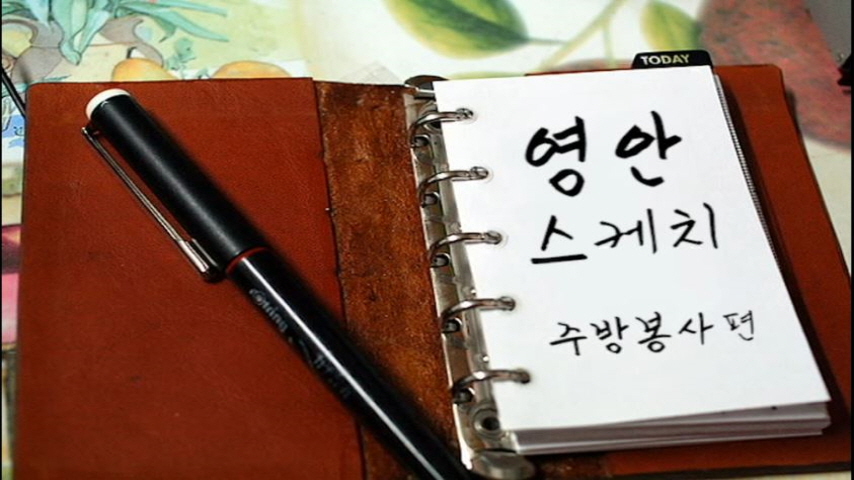 TODAY
영안
스케치
주방봉사 편